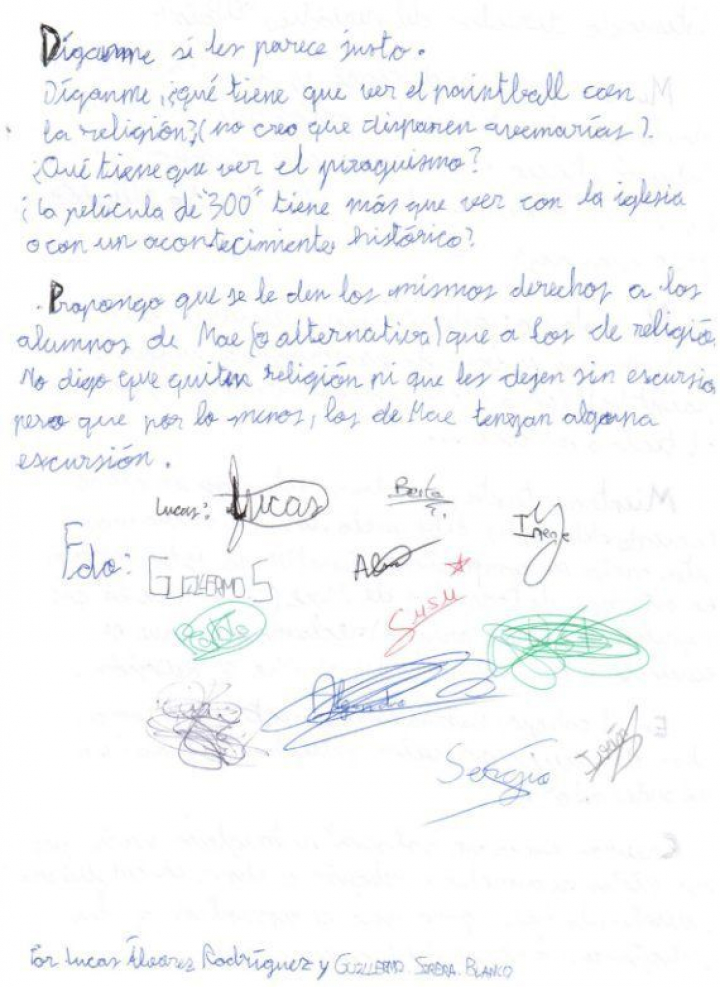 Díganme si les parece justo.
Díganme, ¿qué tiene que ver el paintball con
la religión? (no creo que disparen avemarías).
¿Qué tiene que ver el piragüismo?
¿La película de "300" tiene más que ver con la iglesia
o con un acontecimiento histórico?
Propongo que se le den los mismos derechos a los
alumnos de Mae (o alternativa) que a los de religión.
No digo que quiten religión ni que les dejen sin excursión
pero que por lo menos, los de Mae tengan alguna
excursión.
Lucas: Lucas
Berta
Irene
Fdo: GUILLERMO S
Alba
Susu
Sergio
Por Lucas Álvarez Rodríguez y GUILLERMO BLANCO